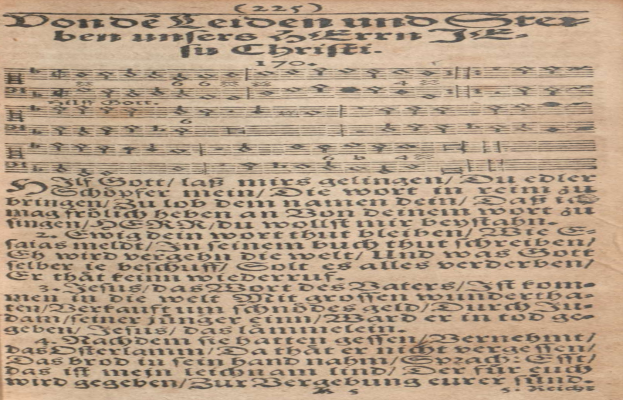 (225)
Von dē Leiden und Ster-
ben unsers HErrn JE-
su Christi.
170.
6 6
4
Hilff Gott.
6
6 4
HIlff Gott/ laß mirs gelingen/ Du edler
Schöpfer mein/ Die wort in reim zu
bringen/ Zu lob dem namen dein/ Daß ich
mag frölich heben an Von deinem wort zu
singen/ HERR/ du wollst mir beystahn.
2. Ewig dein wort thut bleiben/ Wie E-
saias meldt/ In seinem buch thut schreiben/
Eh wird vergehn die welt/ Und was Gott
selber ie beschuff/ Solt es alles verderben/
Er thät keim wiederruf.
3. Jesus/ das Wort des Vaters/ Ist kom-
men in die welt Mit grossen wundertha-
ten/ Verkauft um schnödes geld/ Durch Ju-
dam/ seiner jünger einn/ Ward er in tod ge-
geben/ Jesus/ das lämmelein.
4. Nachdem sie hatten gessen/ Vernehmt/
das Osterlamm/ Da thät er nicht vergessen/
Das brod in sein hand nahm/ Sprach: Esst/
das ist mein leichnam lind/ Der für euch
wird gegeben/ Zur Vergebung eurer sünd.
K 5 5. Reicht